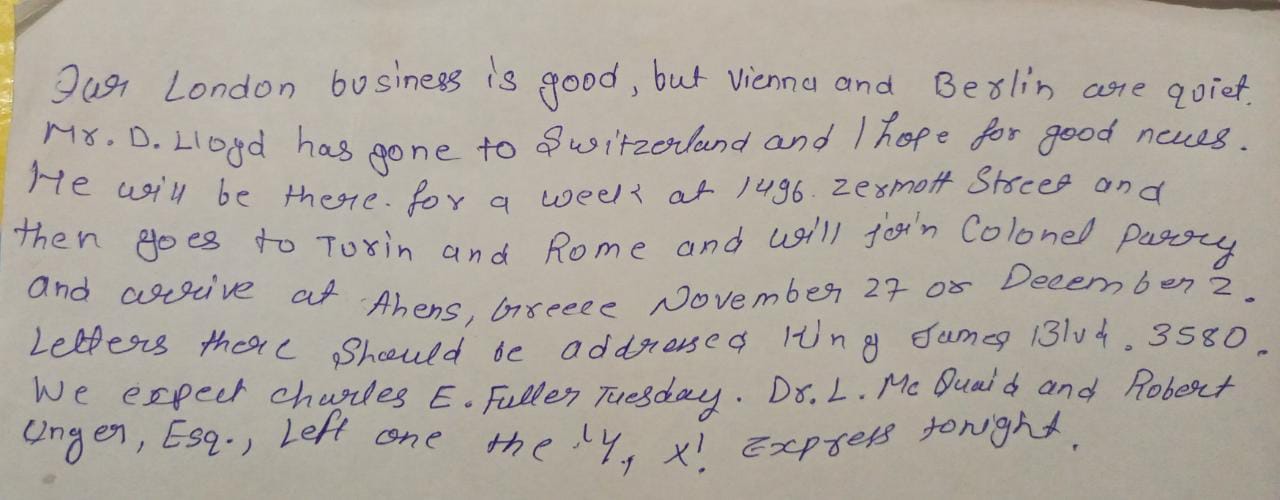 Our London business is good, but Vienna and Berlin are quiet.
Mr. D. Lloyd has gone to Switzerland and I hope for good news.
He will be there. for a week at 1496. Zermott Street and
then goes to Turin and Rome and will join Colonel Parry
and arrive at Ahens, Greece November 27 or December 2.
Letters there Should be addressed King James Blvd. 3580.
We expect charles E. Fuller Tuesday. Dr. L. Mc Quaid and Robert
Unger, Esq., Left one the 'Y, X! Express tonight.